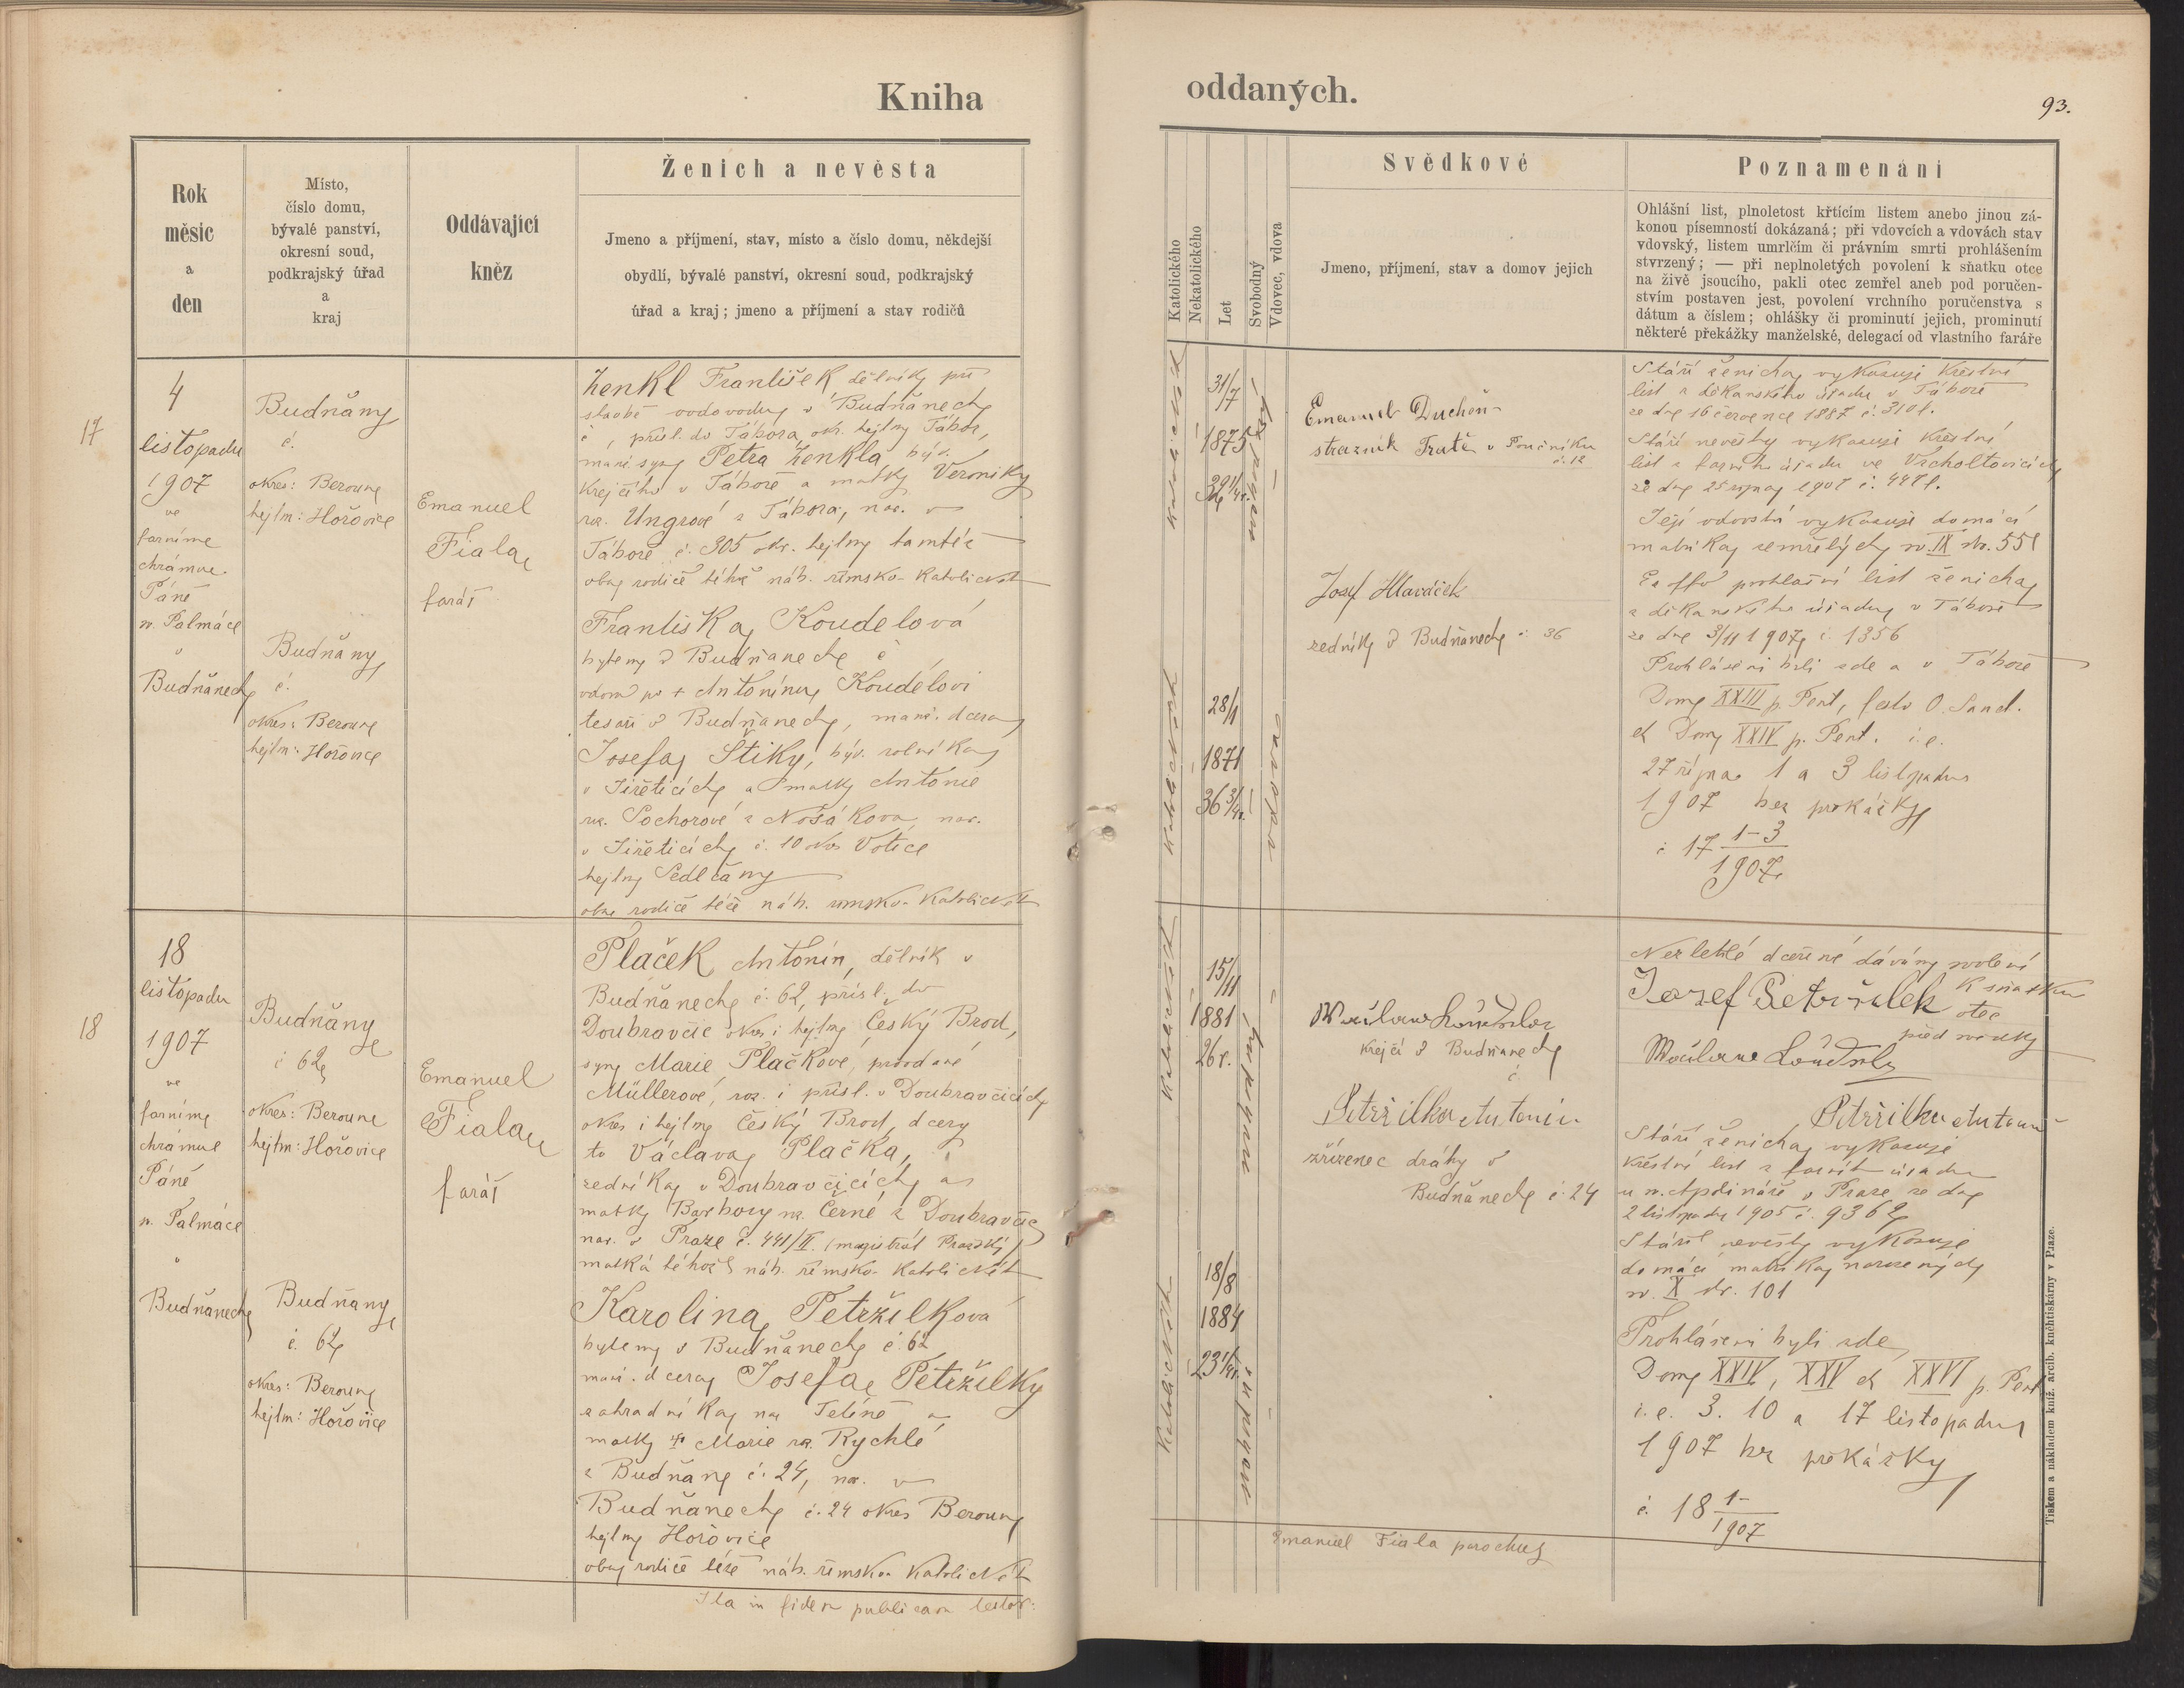 Kniha
oddaných.
93.
Rok
měsíc
a
den
Místo,
číslo domu,
bývalé panství,
okresní soud,
podkrajský úřad
a
kraj
Oddávající
kněz
Ženich a nevěsta
Jmeno a příjmení, stav, místo a číslo domu, někdejší
obydlí, bývalé panství, okresní soud, podkrajský
úřad a kraj; jmeno a příjmení a stav rodičů
Katolického
Nekatolického
Let
Svobodný
Vdovec, vdova
Svědkové
Jmeno, příjmení, stav a domov jejich
Poznamenání
Ohlášní list, plnoletost křtícím listem anebo jinou zá-
konou písemností dokázaná; při vdovcích a vdovách stav
vdovský, listem umrlčím či právním smrti prohlášením
stvrzený; — při neplnoletých povolení k sňatku otce
na živě jsoucího, pakli otec zemřel aneb pod poručen-
stvím postaven jest, povolení vrchního poručenstva s
dátum a číslem; ohlášky či prominutí jejich, prominutí
některé překážky manželské, delegací od vlastního faráře
17
4
listopadu
1907
ve
farním
chrámu
Páně
sv. Palmáce
v
Budňanech
Budňany
č.
okres: Beroun
hejtm: Hořovice
Budňany
č.
okres: Beroun
hejtm: Hořovice
Emanuel
Fiala
farář
Ženkl František dělník při
stavbě vodovodu v Budňanech
č , přísl. do Tábora, okr. hejtm Tábor,
manž. syn Petra Ženkla, býv.
krejčího v Táboře a matky Veroniky
roz. Ungrové z Tábora, nar. v
Táboře č. 305 okr. hejtm tamtéž
oba rodiče téhož náb. římsko-katolického
Františka Koudelová
bytem v Budňanech č
vdova po † Antonínu Koudelovi
tesaři v Budňanech, manž. dcera
Josefa Štiky, býv. rolníka
v Jiřeticích a matky Antonie
roz. Sochorové z Nosákova, nar.
v Jiřeticích č. 10 okr. Votice
hejtm Sedlčany
oba rodiče téže náb. římsko-katolického
katolického
31/7
1875
32 1/4 r.
svobodný
katolického
28/1
1871
36 3/4 r.
vdova
Emanuel Duchoň
strážník Tratě v Poučníku
č. 12
Josef Hlaváček
zedník v Budňanech č. 36
Stáří ženicha vykazuje křestní
list z děkanského úřadu v Táboře
ze dne 16 července 1887 č. 310 f.
Stáří nevěsty vykazuje křestní
list z farního úřadu ve Vrcholtovicích
ze dne 25 října 1907 č. 447 f.
Její vdovství vykazuje domácí
matrika zemřelých sv. IX str. 551
prohlašní list ženicha
z děkanského úřadu v Táboře
ze dne 3/11 1907 č. 1356
Prohlášeni byli zde a v Táboře
Dom XXIII p. Pent, festo O. Sanct.
et Dom XXIV p. Pent. i. e.
27 října 1 a 3 listopadu
1907 bez překážky
č 17 1-3
1907
18
18
listopadu
1907
ve
farním
chrámu
Páně
sv. Palmáce
v
Budňanech
Budňany
č 62
okres: Beroun
hejtm: Hořovice
Budňany
č. 62
okres: Beroun
hejtm: Hořovice
Emanuel
Fiala
farář
Plaček Antonín, dělník v
Budňanech č. 62, přísl. do
Doubravčic okr. i hejtm Český Brod,
syn Marie Plačkové, provdané
Müllerové, roz. i přísl. v Doubravčicích
okres i hejtm Český Brod, dcery
to Václava Plačka,
zedníka v Doubravčicích a
matky Barbory roz. Černé z Doubravčic
nar. v Praze č. 441/II. (magistrát Pražský)
matka téhož náb. římsko-katolického
Karolina Petržilková
bytem v Budňanech č. 62
manž. dcera Josefa Petržilky
zahradníka na Tetíně a
matky † Marie roz. Rychlé
z Budňan č. 24, nar. v
Budňanech č. 24 okres Beroun
hejtm Hořovice
oba rodiče téže náb. římsko-katolického
Ita in fidem publicam testor:
katolického
15/11
1881
26 r.
svobodný
katolického
18/8
1884
23 1/4 r.
svobodná
Václav Loudzlor
krejčí v Budňanech
č
Petržilka Antonín
zřízenec dráhy v
Budňanech č. 24
Nezletilé dceři mé dávám svolení
k sňatku
Jozef Petržilek
otec
před svědky
Petržilka Antonín
Stáří ženicha vykazuje
křestní list z farního úřadu
u sv. Apolináře v Praze ze dne
2 listopadu 1905 č. 9362
Stáří nevěsty vykazuje
domácí matrika narozených
sv. X str. 101
Prohlášeni byli zde
Dom XXIV, XXV et XXVI p. Pent
i. e. 3. 10 a 17 listopadu
1907 bez překážky
č. 18 1-
1907
Emanuel Fiala parochus
Tiskem a nákladem kníž. arcib. kněhtiskárny v Praze.